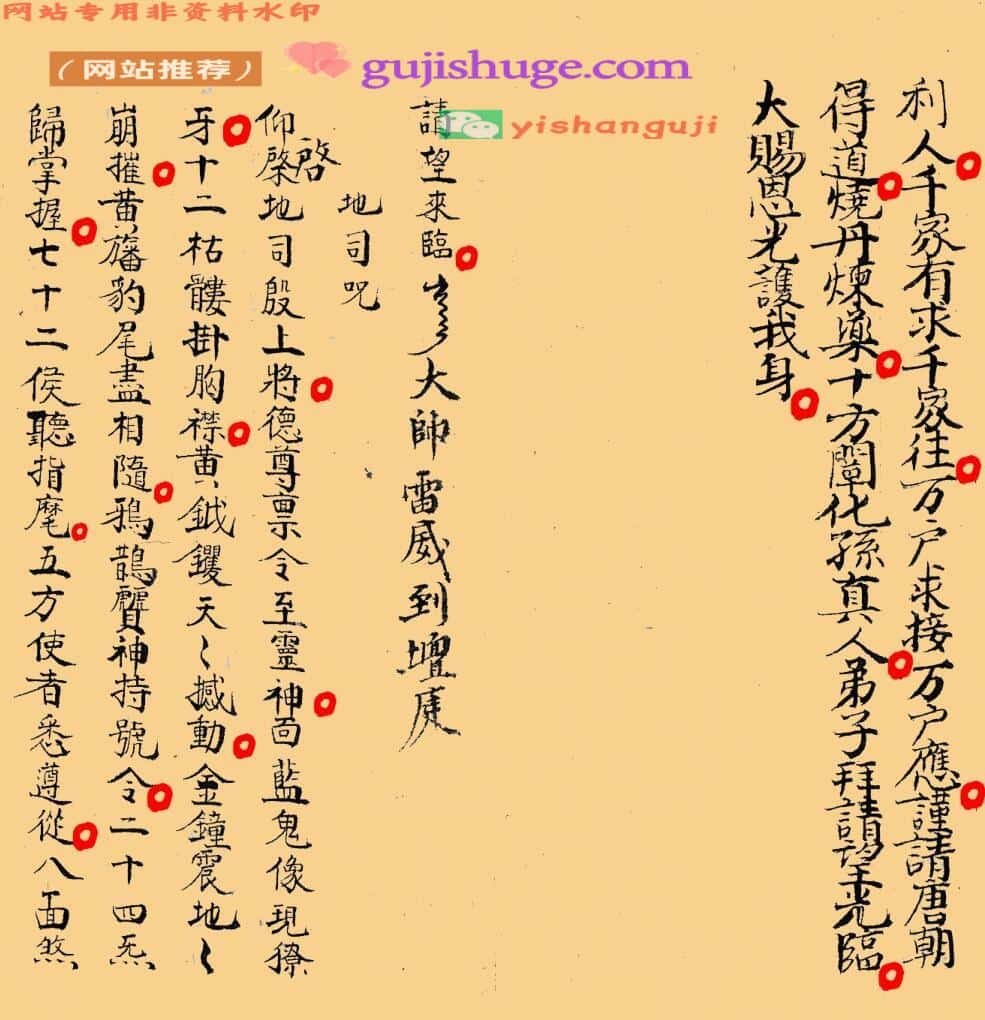 网站专用非资料水印
（网站推荐）
gujishuge.com
yishanguji
利人千家有求千家往万户求接万户應謹請唐朝
得道燒丹煉藥十方闡化孫真人弟子拜請望光臨
大賜恩光護我身
請望來臨 大帥雷威到壇庭
地司咒
仰啓地司殷上將德尊禀令至靈神面藍鬼像現獠
牙十二枯髏掛胸襟黃鉞钁天〻撼動金鐘震地〻
崩摧黄旛豹尾盡相隨鴉鵲神持號令二十四炁
歸掌握七十二侯聽指麾五方使者悉遵從八面煞